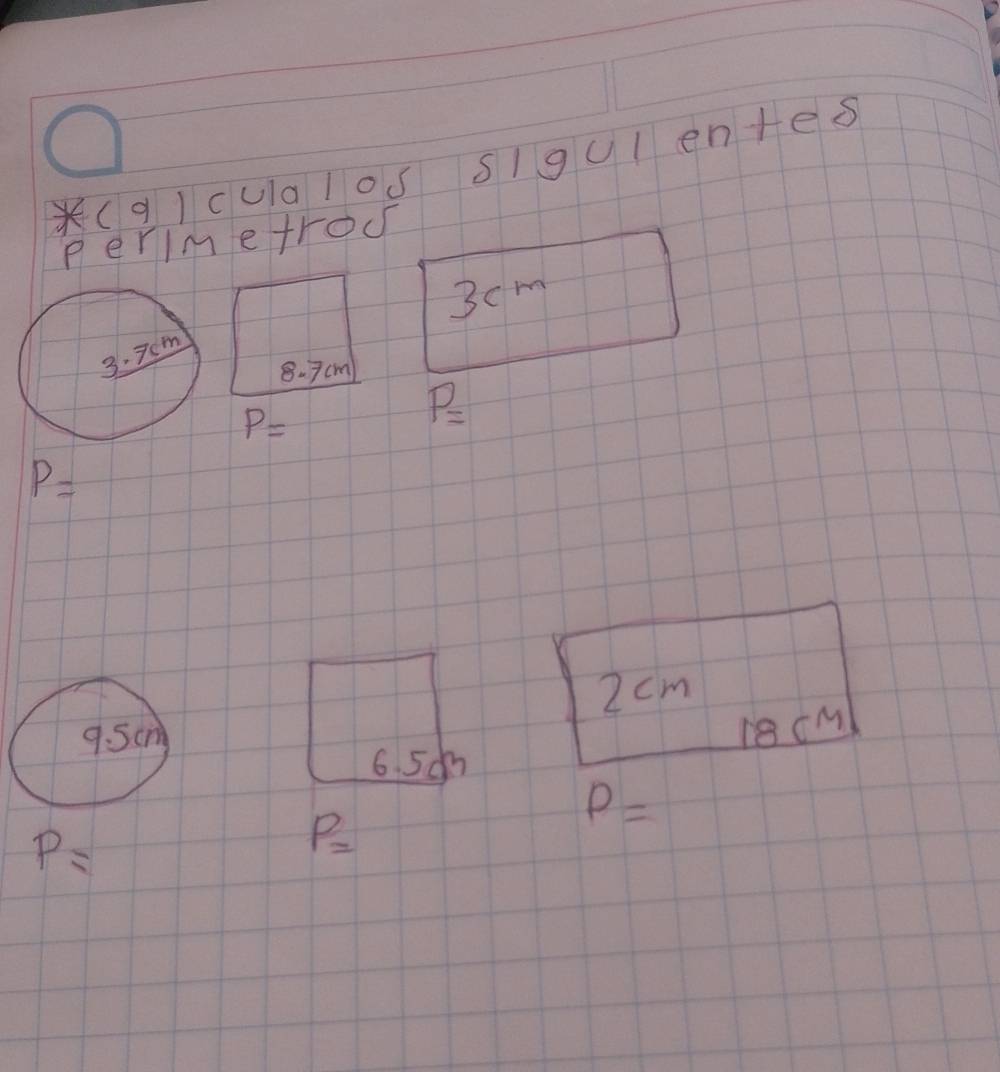 *calcula los siguientes
perimetros
3.7cm
8.7cm
3cm
P=
P=
P=
9.5cm
6.5cm
2cm
18cm
P=
P=
P=